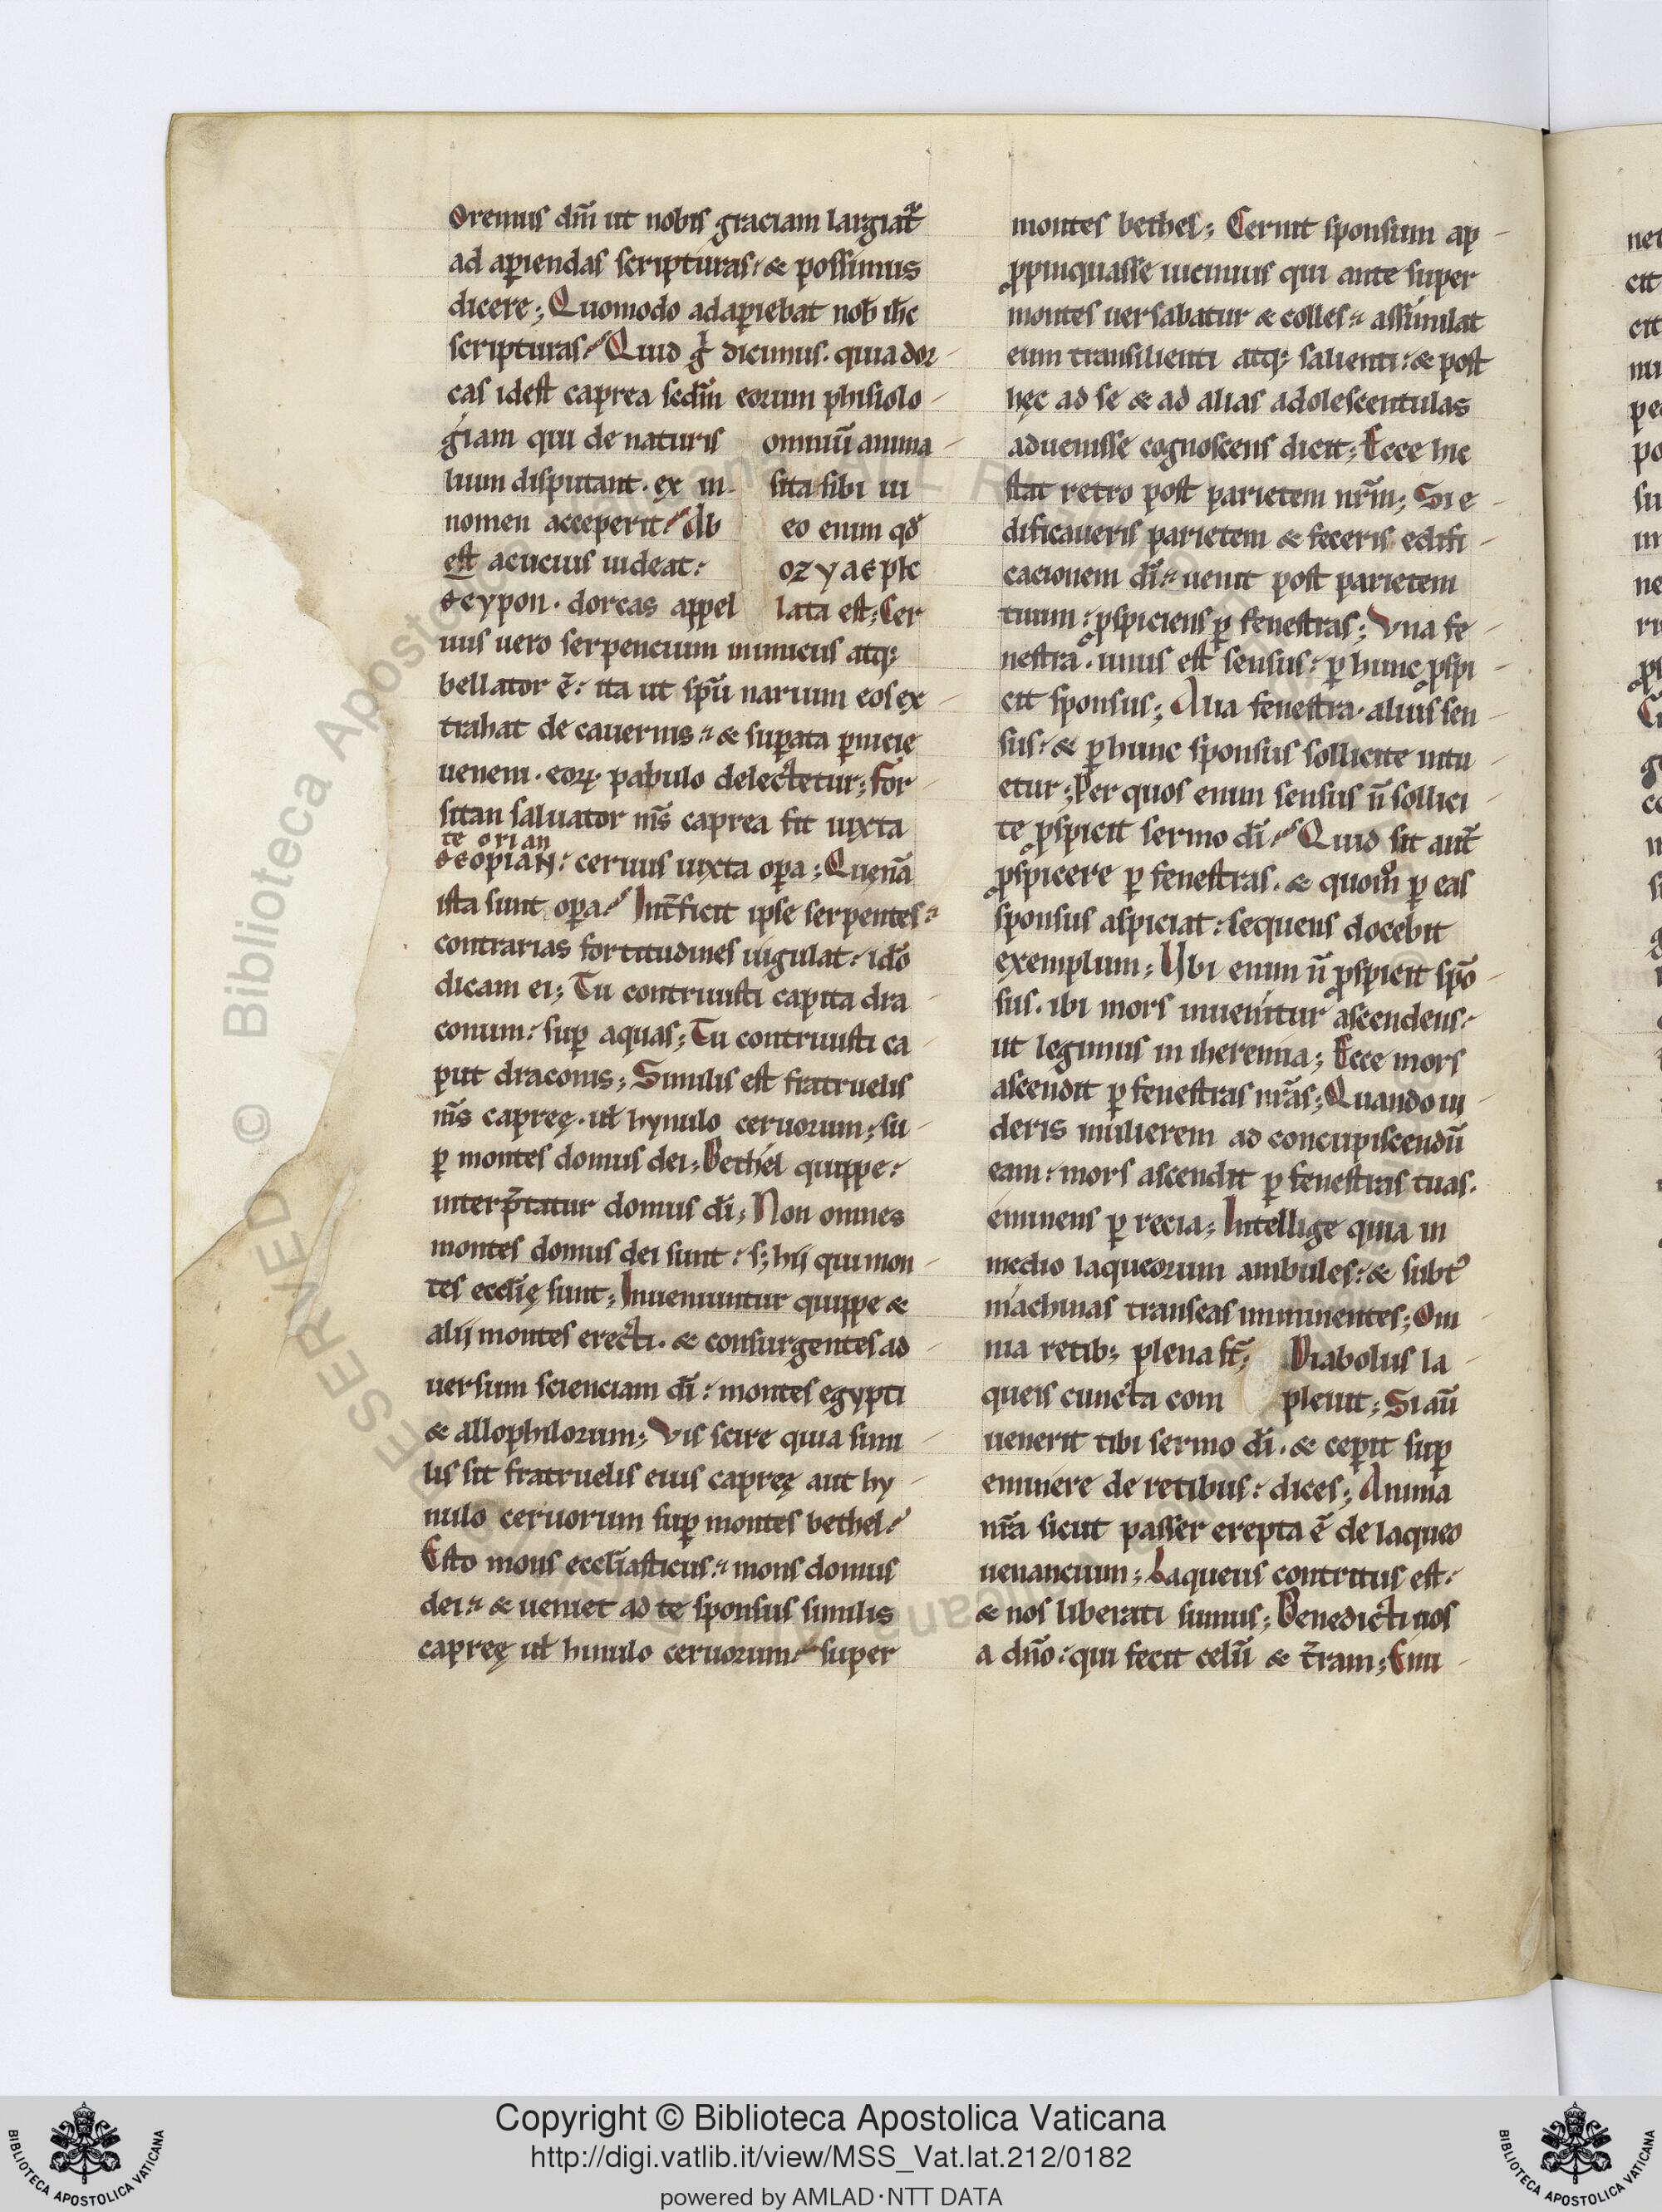 Oremus dm̄ ut nobis graciam largiat᷑
ad aꝑiendas scripturas: & possimus
dicere; Quomodo adaꝑiebat nob̄ ih̄c
scripturas? Quid g̊ dicimus. quia dor-
cas id est caprea scdm̄ eorum phisiolo-
giam qui de naturis omniū anima-
lium disputant. ex in- sita sibi ui
nomen acceperit? Ab eo enim qd̓
est acucius uideat: ozyaeplc
deypon. dorcas appel lata est; Cer
uus uero serpencium inimicus atq;
bellator ē: ita ut spū narium eos ex-
trahat de cauernis: & suꝑata ꝑnicie
ueneni. eoꝝ pabulo delectetur; For-
sitan saluator nr̄s caprea sit iuxta
te orian
deopian: ceruus iuxta oꝑa; Quenā
ista sunt oꝑa? Int̄ficit ipse serpentes:
contrarias fortitudines iugulat: idō
dicam ei; Tu contriuisti capita dra-
conum: suꝑ aquas; Tu contriuisti ca-
put draconis; Similis est fratruelis
nr̄s capreę. ut̵ hynulo ceruorum; su-
ꝑ montes domus dei; Bethel quippe:
interp̄tatur domus dī; Non omnes
montes domus dei sunt: s; hij qui mon-
tes ecclīę sunt; Inueniuntur quippe &
alij montes erecti. & consurgentes ad-
uersum scienciam dī: montes egypti
& allophilorum; Vis scire quia simi-
lis sit fratruelis eius capreę aut hy-
nulo ceruorum suꝑ montes bethel?
Esto mons eccl̄iasticus: mons domus
dei: & ueniet ad te sponsus similis
capreę ut̵ hinulo ceruorum: super
montes bethel; Cernit sponsum ap-
ꝓpinquasse uicinius qui ante super
montes uersabatur & colles: assimilat
eum transilienti atq; salienti: & post
hęc ad se & ad alias adolescentulas
aduenisse cognoscens dicit; Ecce hic
stat retro post parietem nr̄m; Si e-
dificaueris parietem & feceris edifi-
cacionem dī: uenit post parietem
tuum: ꝓspiciens ꝑ fenestras; Vna fe-
nestra. unus est sensus: ꝑ hunc ꝓspi-
cit sponsus; Alia fenestra. alius sen-
sus: & ꝑ hunc sponsus sollicite intu-
etur; Per quos enim sensus ñ sollici-
te ꝓspicit sermo dī? Quid sit aut̄
ꝓspicere ꝑ fenestras. & quom̊ ꝑ eas
sponsus aspiciat: sequens docebit
exemplum; Ubi enim ñ ꝓspicit spō-
sus. ibi mors inuenitur ascendens:
ut legimus in iheremia; Ecce mors
ascendit ꝑ fenestras nr̄as; Quando ui-
deris mulierem ad concupiscendū
eam: mors ascendit ꝑ fenestras tuas.
eminens ꝑ recia; Intellige quia in
medio laqueorum ambules: & subt᷑
machinas transeas imminentes; Om
nia retib; plena st̄; Diabolus la-
queis cuncta com pleuit; Si aū
uenerit tibi sermo dī. & ceꝑit suꝑ
eminere de retibus: dices; Anima
nr̄a sicut passer erepta ē de laqueo
uenancium; Laqueus contritus est:
& nos liberati sumus; Benedicti nos
a dn̄o: qui fecit celū & t̄ram; Emi-
Copyright © Biblioteca Apostolica Vaticana
http://digi.vatlib.it/view/MSS_Vat.lat.212/0182
powered by AMLAD·NTT DATA
BIBLIOTECA APOSTOLICA VATICANA
BIBLIOTECA APOSTOLICA VATICANA